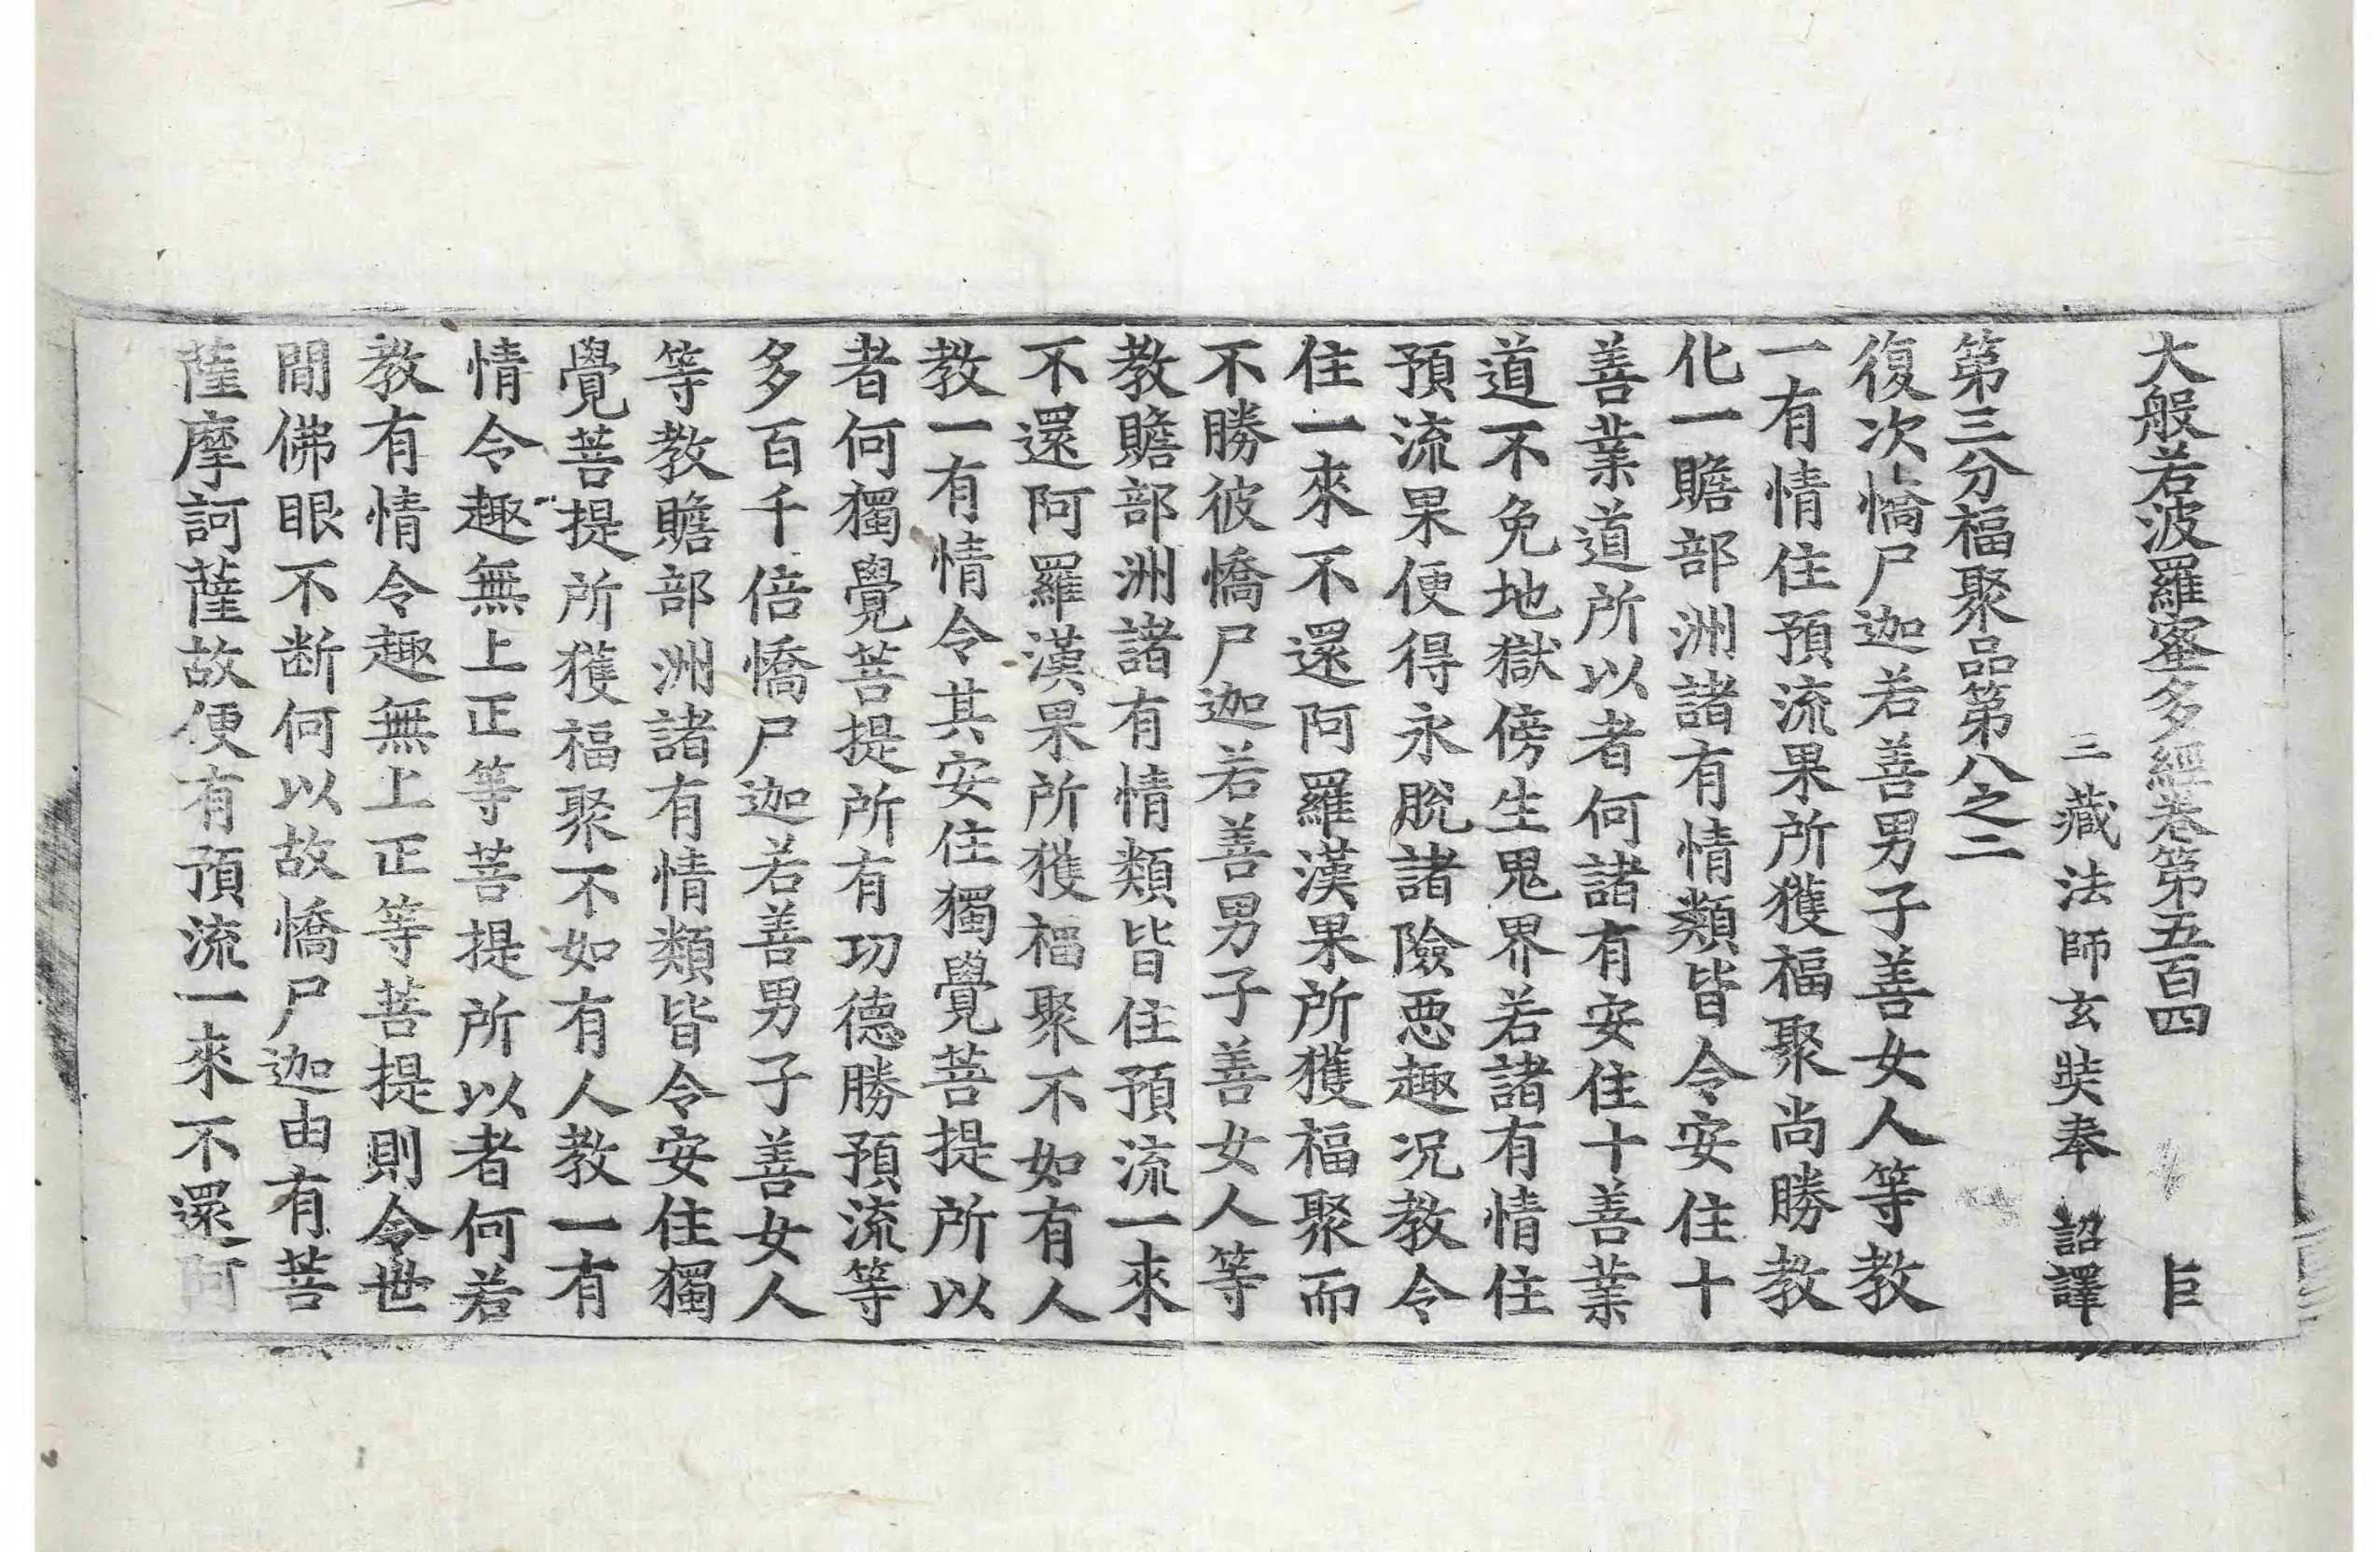 大般若波羅蜜多經卷第五百四 巨
三藏法師玄奘奉 詔譯
第三分福聚品第八之二
復次憍尸迦若善男子善女人等教
一有情住預流果所獲福聚尚勝教
化一贍部洲諸有情類皆令安住十
善業道所以者何諸有安住十善業
道不免地獄傍生鬼界若諸有情住
預流果便得永脫諸險惡趣况教令
住一來不還阿羅漢果所獲福聚而
不勝彼憍尸迦若善男子善女人等
教贍部洲諸有情類皆住預流一來
不還阿羅漢果所獲福聚不如有人
教一有情令其安住獨覺菩提所以
者何獨覺菩提所有功德勝預流等
多百千倍憍尸迦若善男子善女人
等教贍部洲諸有情類皆令安住獨
覺菩提所獲福聚不如有人教一有
情令趣無上正等菩提所以者何若
教有情令趣無上正等菩提則令世
間佛眼不断何以故憍尸迦由有菩
薩摩訶薩故便有預流一來不還阿